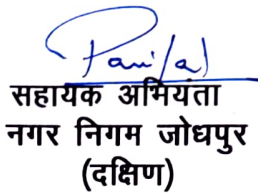 सहायक अभियंता
नगर निगम जोधपुर
(दक्षिण)